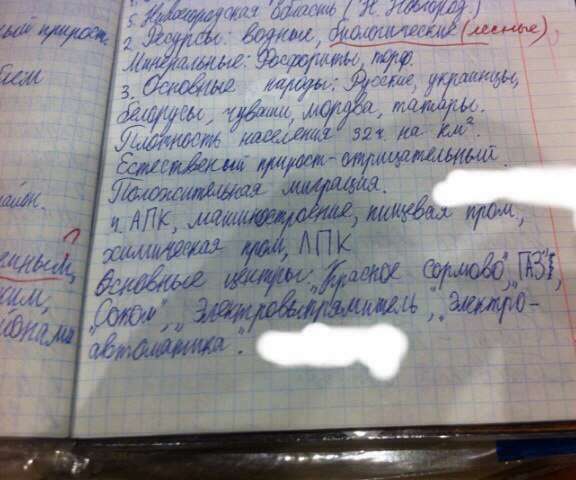 ный прирост
5. Нижегородская область (Н. Новгород.)
2. Ресурсы: водные, биологические (лесные),
Минеральные: Фосфориты, торф.
3. Основные народы: Русские, украинцы,
белорусы, чуваши, мордва, татары.
Плотность населения 32 ч. на км².
Естественый прирост - отрицательный.
Положительная миграция.
4. АПК, машиностроение, пищевая пром,
химическая пром, ЛПК
Основные центры: "Красное Сормово", "ГАЗ",
"Сотом", "Электровыпрямитель", "Электро-
автоматика".